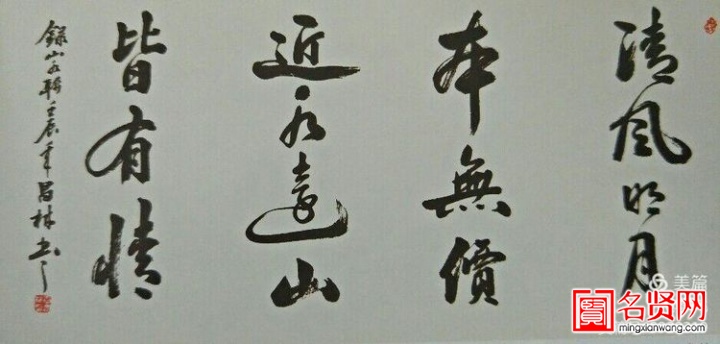 清風明月
本無價
近水遠山
皆有情
錄山水聯壬辰年昌林书
美篇
名贤网
mingxianwang.com